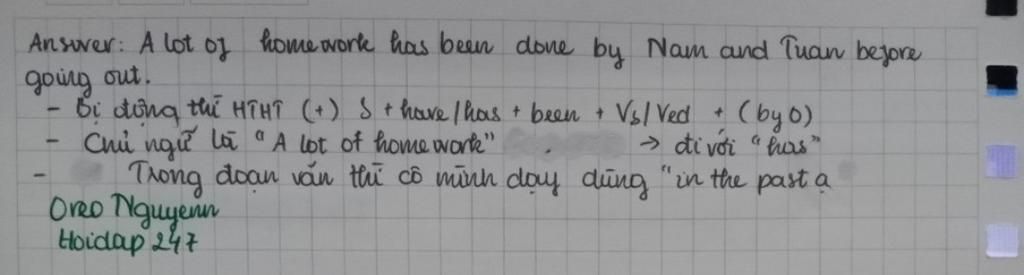 Answer: A lot of homework has been done by Nam and Tuan before
going out.
- Bị động thì HTHT (+) S + have/has + been + V3/Ved + (by O)
- Chủ ngữ là "A lot of homework" → đi với "has"
- Trong đoạn văn thì cô mình dạy dùng "in the past ạ
Oreo Nguyenn
Hoidap 247